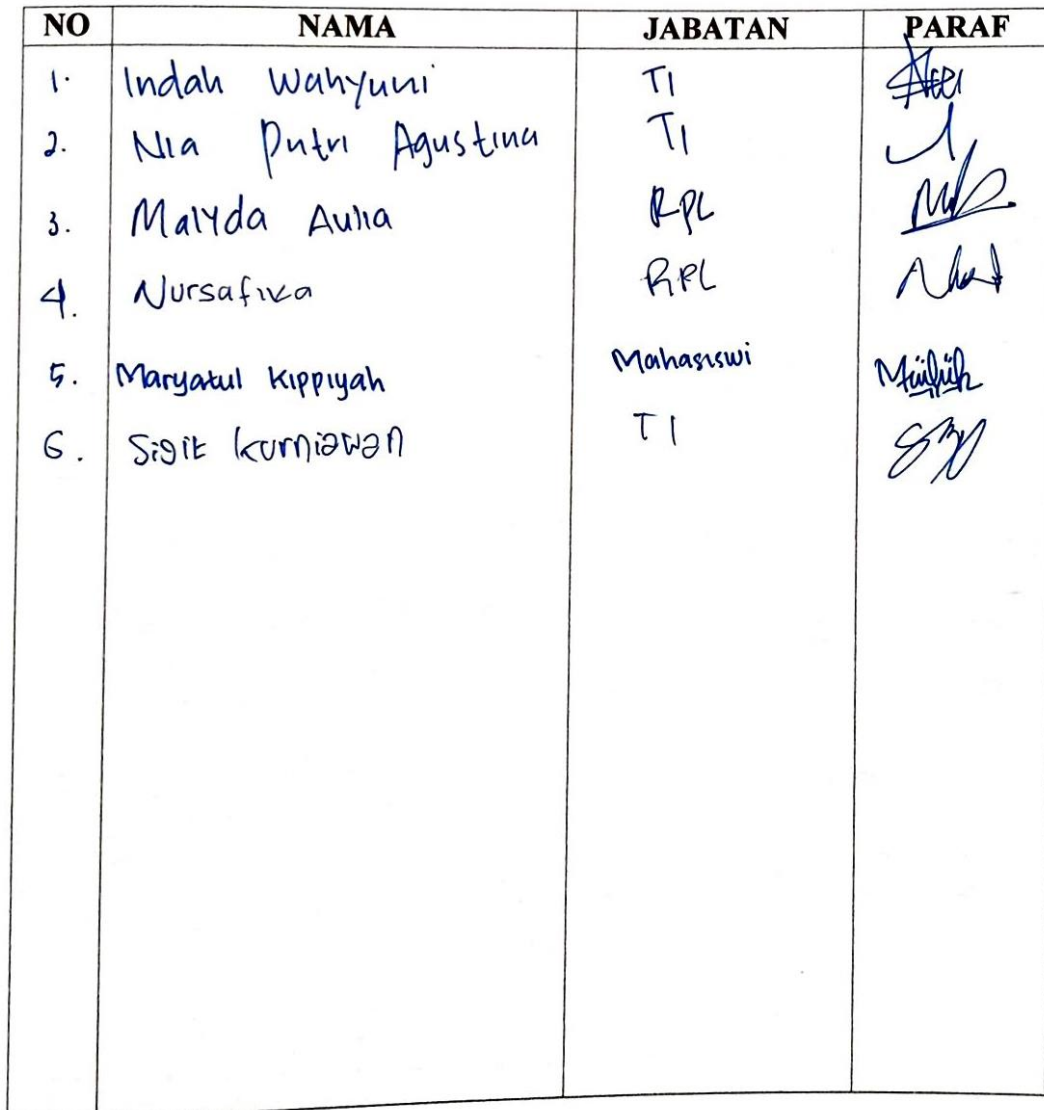 NO NAMA JABATAN PARAF
1. Indah Wahyuni TI
2. Nia Putri Agustina TI
3. Malyda Aulia RPL
4. Nursafika RPL
5. Maryatul Kippiyah Mahasiswi
6. Sigit Kurniawan TI